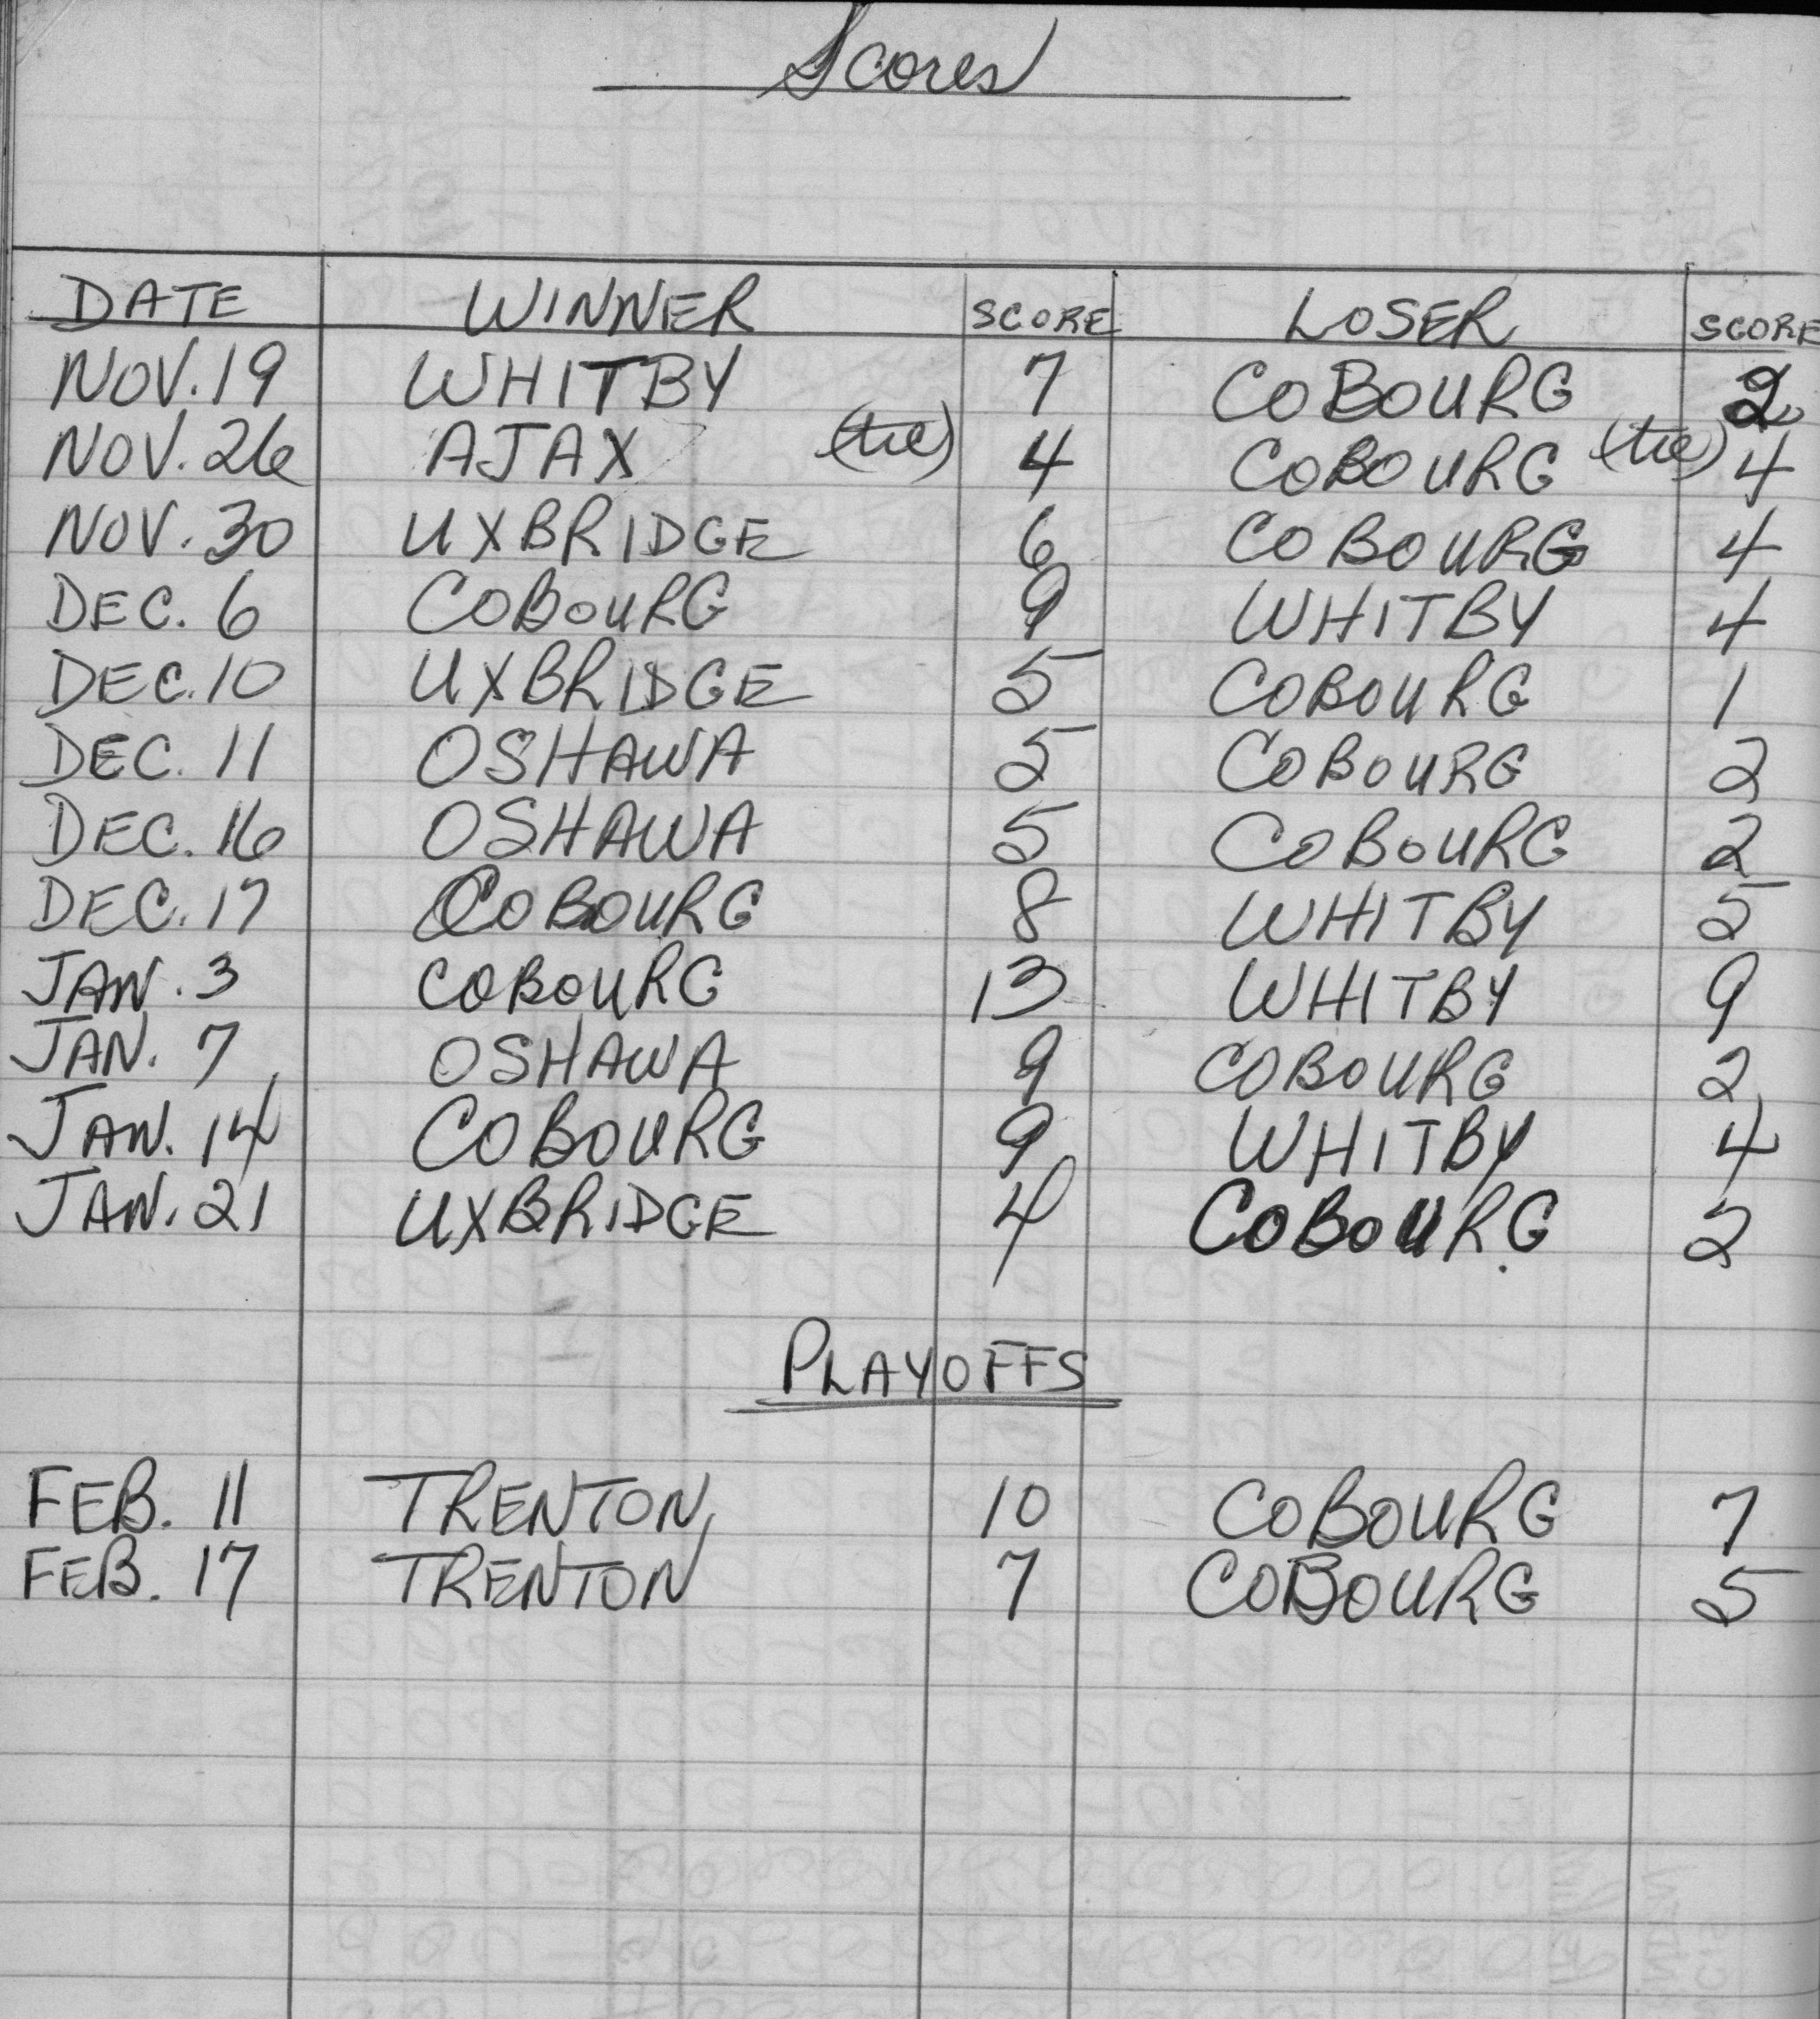 Scores
DATE WINNER SCORE LOSER SCORE
NOV. 19 WHITBY 7 COBOURG 2
NOV. 26 AJAX (tie) 4 COBOURG (tie) 4
NOV. 30 UXBRIDGE 6 COBOURG 4
DEC. 6 COBOURG 9 WHITBY 4
DEC. 10 UXBRIDGE 5 COBOURG 1
DEC. 11 OSHAWA 5 COBOURG 2
DEC. 16 OSHAWA 5 COBOURG 2
DEC. 17 COBOURG 8 WHITBY 5
JAN. 3 COBOURG 13 WHITBY 9
JAN. 7 OSHAWA 9 COBOURG 2
JAN. 14 COBOURG 9 WHITBY 4
JAN. 21 UXBRIDGE 4 COBOURG 2
PLAYOFFS
FEB. 11 TRENTON 10 COBOURG 7
FEB. 17 TRENTON 7 COBOURG 5